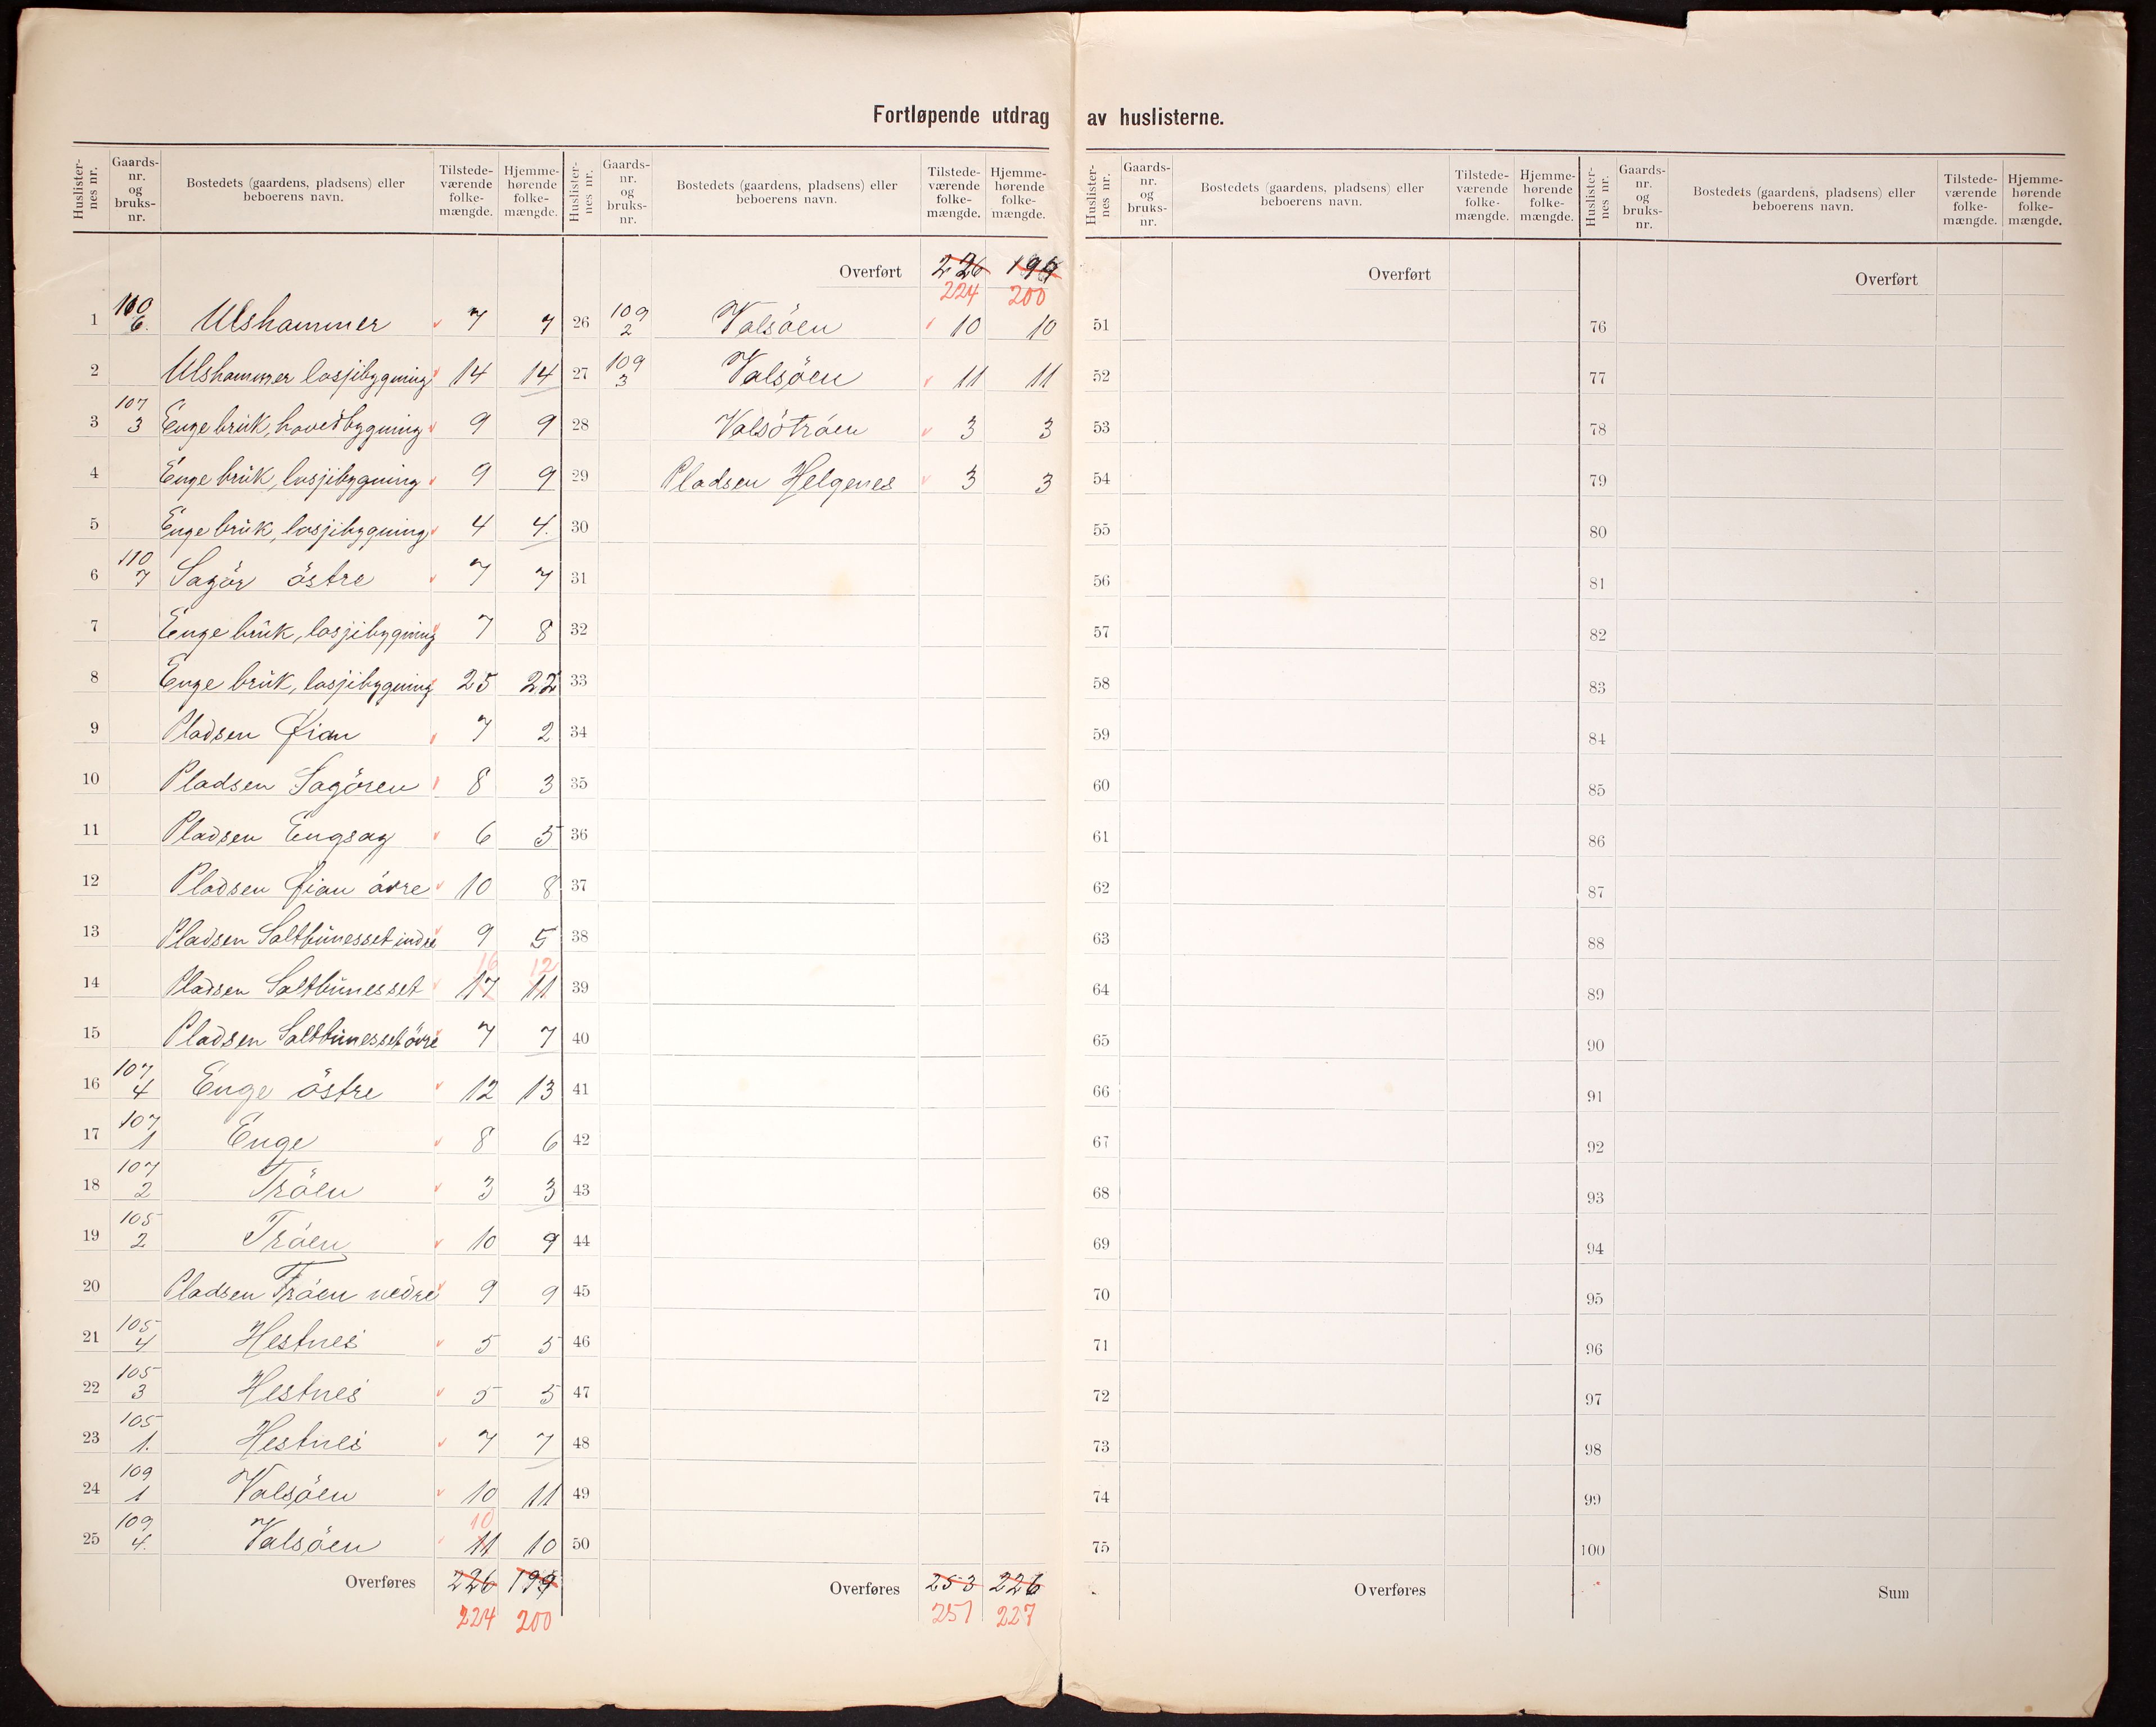 Fortløpende utdrag av huslisterne.
Huslisternes nr. | Gaards-nr. og bruks-nr. | Bostedets (gaardens, pladsens) eller beboerens navn. | Tilstede-værende folke-mængde. | Hjemme-hørende folke-mængde.
1 | 110 6. | Ulshammer | 7 | 7
2 | Ulshammer losjibygning | 14 | 14
3 | 107 3 | Enge brük, hovedbygning | 9 | 9
4 | Enge brük, losjibygning | 9 | 9
5 | Enge brük, losjibygning | 4 | 4.
6 | 110 7 | Sagör östre | 7 | 7
7 | Enge brük, losjibygning | 7 | 8
8 | Enge brük, losjibygning | 25 | 22
9 | Pladsen Qian | 7 | 2
10 | Pladsen Sagören | 8 | 3
11 | Pladsen Engsag | 6 | 5
12 | Pladsen Qian övre | 10 | 8
13 | Pladsen Saltbünesset indre | 9 | 5
14 | Pladsen Saltbünesset | 17 16 | 11 12
15 | Pladsen Saltbünesset övre | 7 | 7
16 | 107 4 | Enge östre | 12 | 13
17 | 107 1 | Enge | 8 | 6
18 | 107 2 | Tröen | 3 | 3
19 | 105 2 | Tröen | 10 | 9
20 | Pladsen Tröen nedre | 9 | 9
21 | 105 4 | Hestnes | 5 | 5
22 | 105 3 | Hestnes | 5 | 5
23 | 105 1. | Hestnes | 7 | 7
24 | 109 1 | Valsöen | 10 | 11
25 | 109 4. | Valsöen | 11 10 | 10
Overføres | 226 | 199
224 | 200
Huslisternes nr. | Gaards-nr. og bruks-nr. | Bostedets (gaardens, pladsens) eller beboerens navn. | Tilstede-værende folke-mængde. | Hjemme-hørende folke-mængde.
Overført | 226 | 199
224 | 200
26 | 109 2 | Valsöen | 10 | 10
27 | 109 3 | Valsöen | 11 | 11
28 | Valsötröen | 3 | 3
29 | Pladsen Helgenes | 3 | 3
30
31
32
33
34
35
36
37
38
39
40
41
42
43
44
45
46
47
48
49
50
Overføres | 253 | 226
251 | 227
Huslisternes nr. | Gaards-nr. og bruks-nr. | Bostedets (gaardens, pladsens) eller beboerens navn. | Tilstede-værende folke-mængde. | Hjemme-hørende folke-mængde.
Overført
51
52
53
54
55
56
57
58
59
60
61
62
63
64
65
66
67
68
69
70
71
72
73
74
75
Overføres
Huslisternes nr. | Gaards-nr. og bruks-nr. | Bostedets (gaardens, pladsens) eller beboerens navn. | Tilstede-værende folke-mængde. | Hjemme-hørende folke-mængde.
Overført
76
77
78
79
80
81
82
83
84
85
86
87
88
89
90
91
92
93
94
95
96
97
98
99
100
Sum